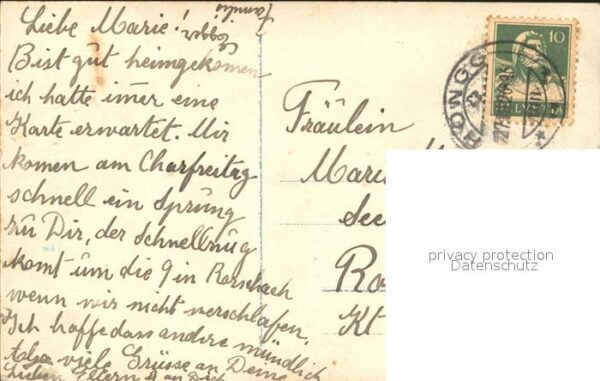 Liebe Marie!
Bist gut heimgekomen
ich hatte imer eine
Karte erwartet. Mir
komen am Charfreitag
schnell ein Sprung
zu Dir, der Schnellzug
komt um die 9 in Rorschach
wenn wir nicht verschlafen.
Ich hoffe dass andere mündlich
Also viele Grüsse an Deine
Lieben Eltern & an Dich
Familie
Fräulein
Marie
See
Ro
Kt
10
HELVETIA
privacy protection
Datenschutz